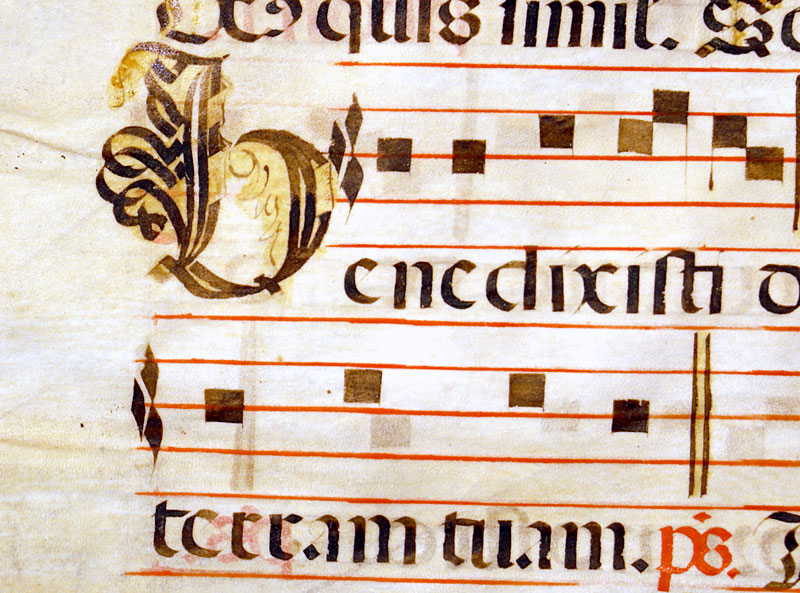 quis simil. 
Benedixisti
terram tuam. ps.